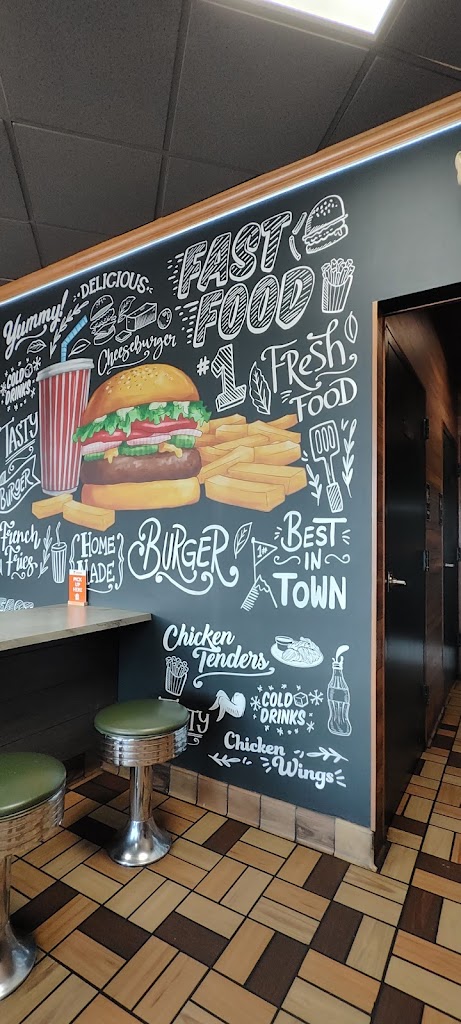 Yummy!
DELICIOUS
FAST
FOOD
Cheeseburger
#1
COLD
DRINKS
Fresh
FOOD
TASTY
BURGER
French
Fries
HOME
MADE
BURGER
BEST
IN
TOWN
PICK
UP
HERE
Chicken
Tenders
COLD
DRINKS
Chicken
Wings